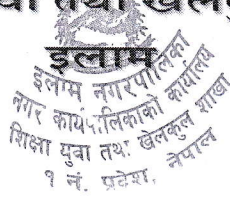 तथा
इलाम
इलाम नगरपालिका
नगर कार्यपालिकाको कार्यालय
शिक्षा युवा तथा खेलकुद शाखा
१ नं. प्रदेश, नेपाल